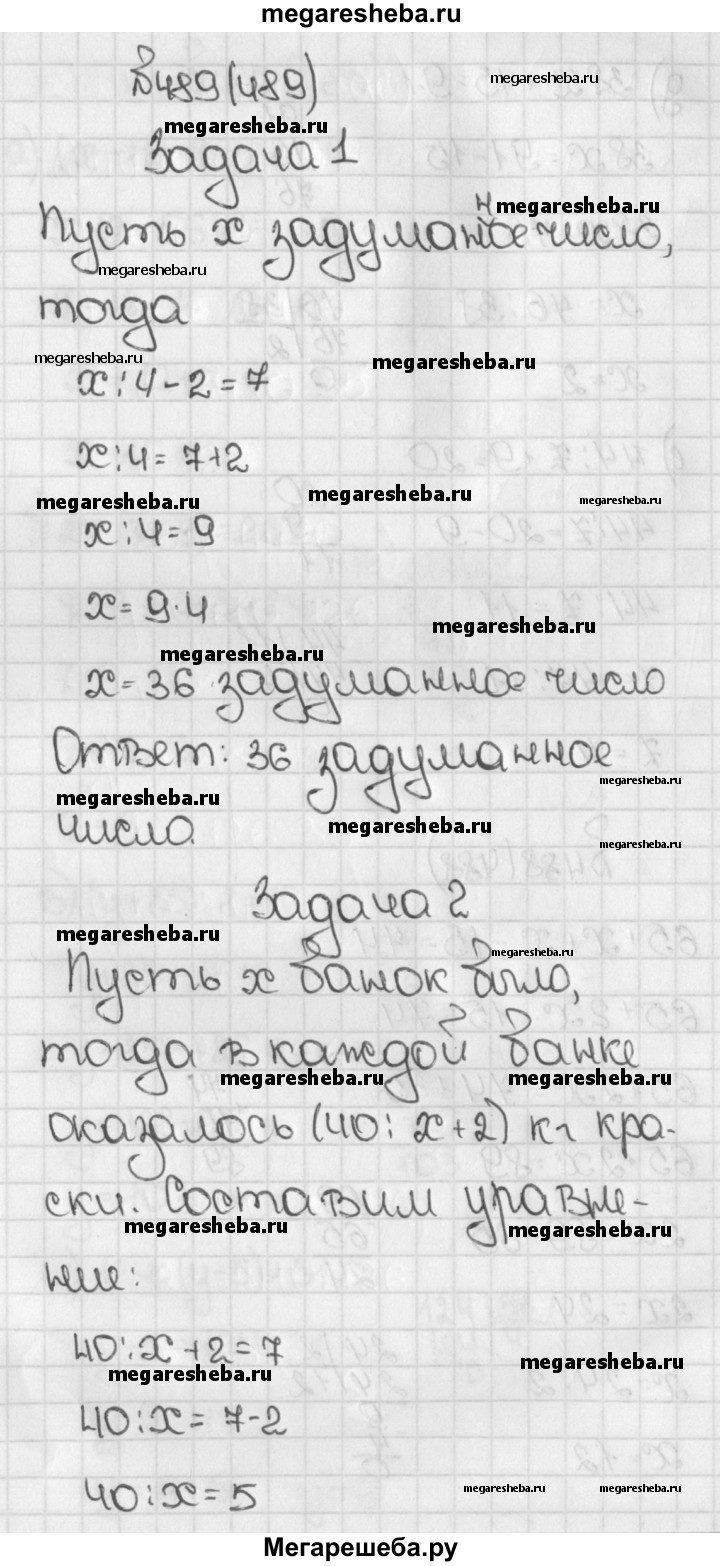 megaresheba.ru
№489(489)
megaresheba.ru
megaresheba.ru
Задача 1
megaresheba.ru
Пусть x задуманное число,
megaresheba.ru
тогда
megaresheba.ru
megaresheba.ru
x:4-2=7
x:4=7+2
megaresheba.ru
megaresheba.ru
megaresheba.ru
x:4=9
x=9·4
megaresheba.ru
megaresheba.ru
x=36 задуманное число
Ответ: 36 задуманное
megaresheba.ru
megaresheba.ru
число.
megaresheba.ru
megaresheba.ru
Задача 2
megaresheba.ru
megaresheba.ru
Пусть x банок было,
тогда в каждой банке
megaresheba.ru
megaresheba.ru
оказалось (40:x+2) кг кра-
ски. Составим уравне-
megaresheba.ru
megaresheba.ru
ние:
40:x+2=7
megaresheba.ru
megaresheba.ru
40:x=7-2
40:x=5
megaresheba.ru
megaresheba.ru
Мегарешеба.ру